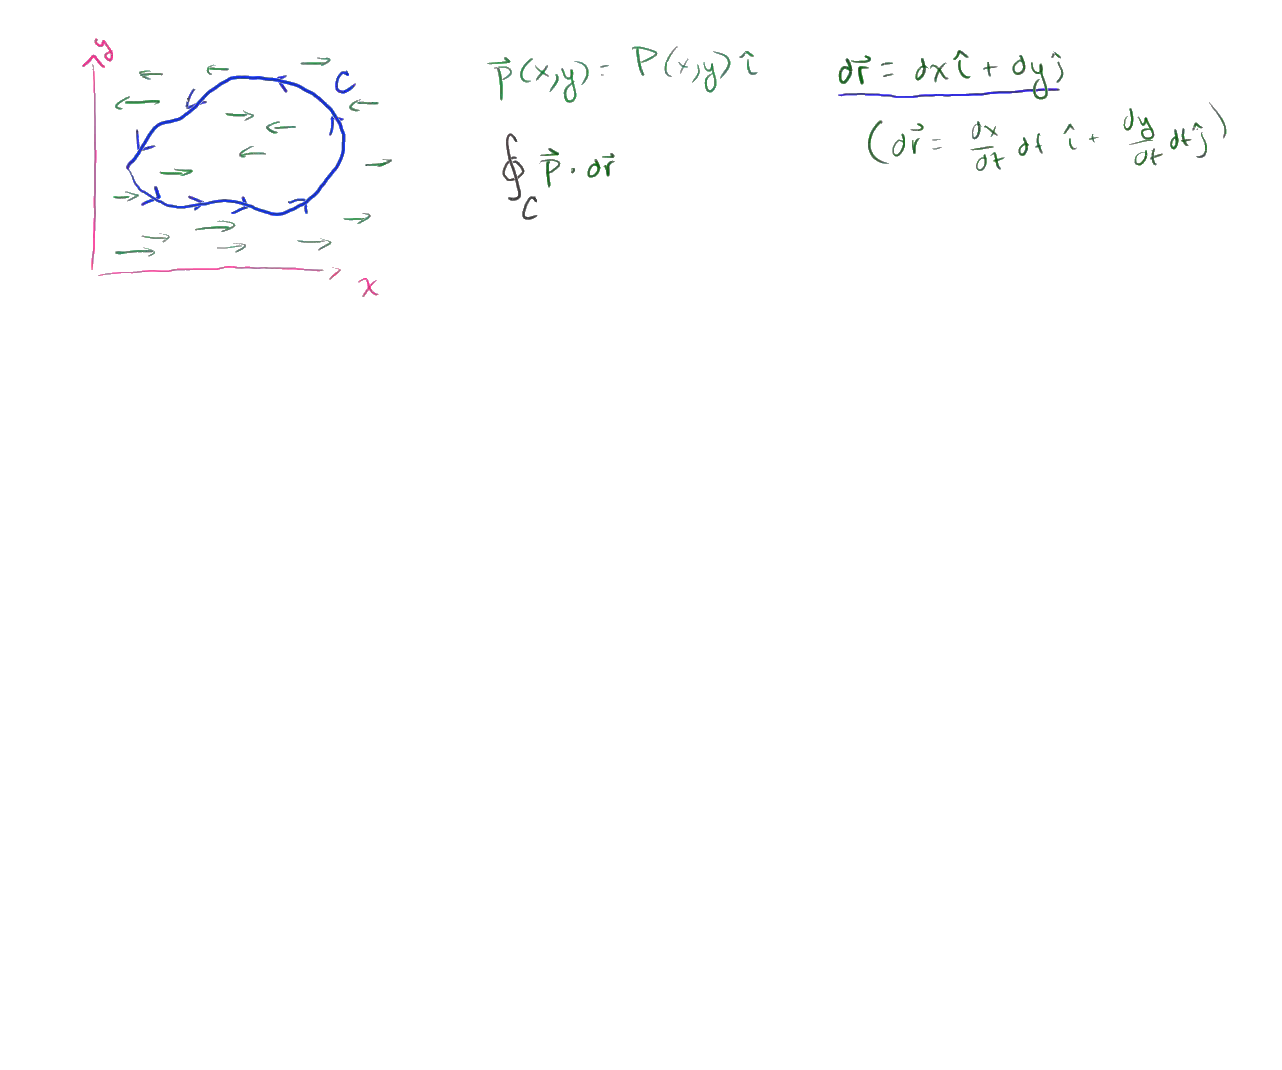 y
C
x
p⃗(x,y) = P(x,y) î
∮_C p⃗ · dr⃗
dr⃗ = dx î + dy ĵ
(dr⃗ = dx/dt dt î + dy/dt dt ĵ)